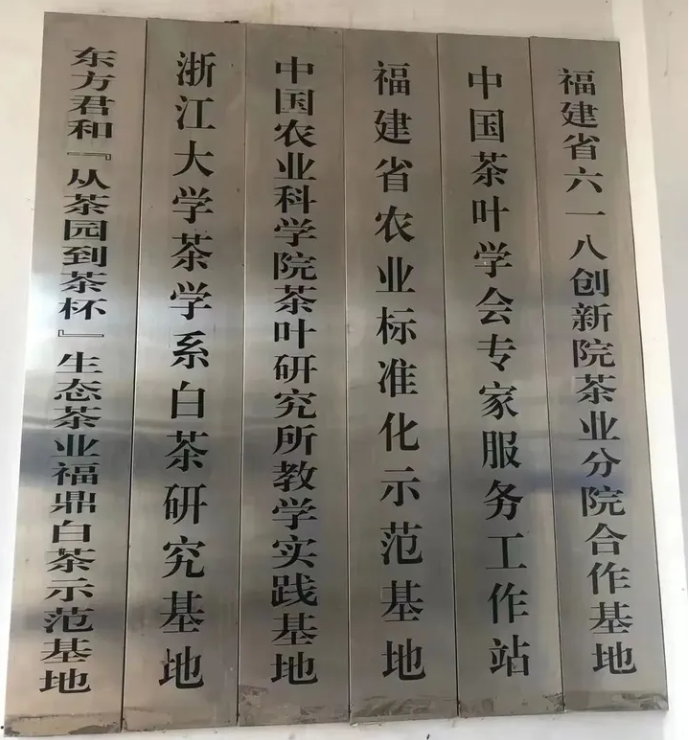 福建省六一八创新院茶业分院合作基地
中国茶叶学会专家服务工作站
福建省农业标准化示范基地
中国农业科学院茶叶研究所教学实践基地
浙江大学茶学系白茶研究基地
东方君和『从茶园到茶杯』生态茶业福鼎白茶示范基地